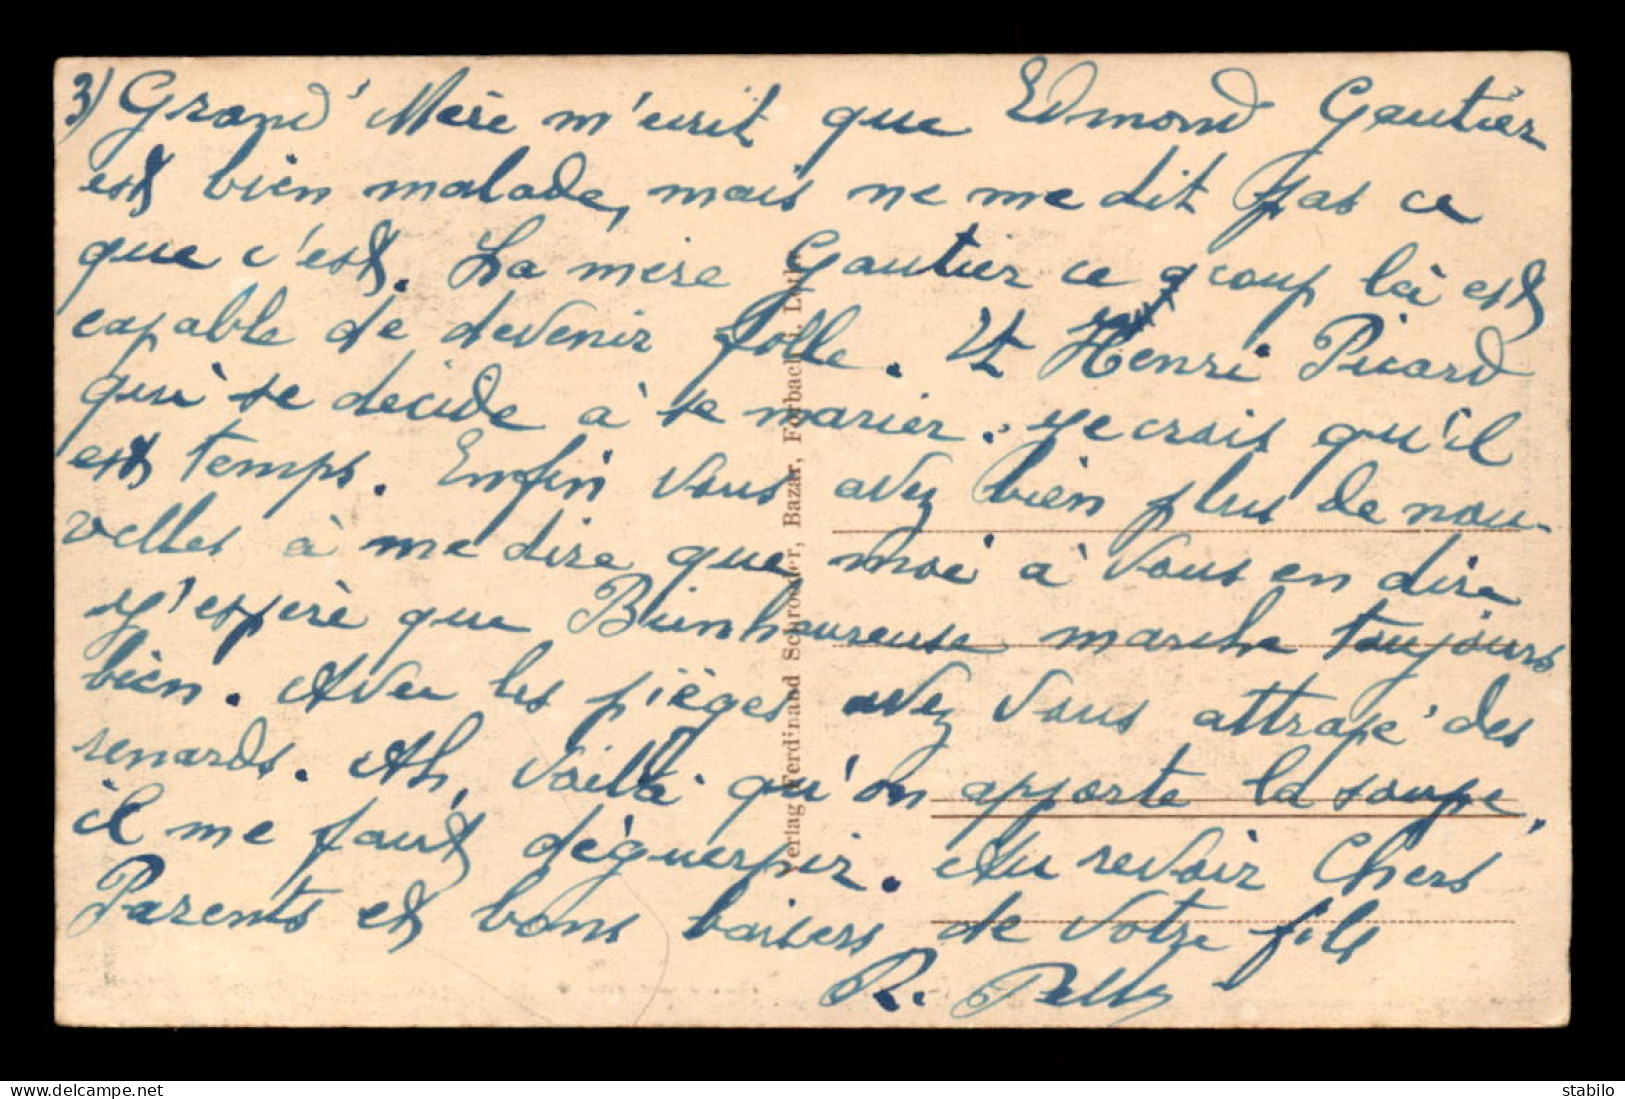 3) Grand'Mère m'ecrit que Edmond Gautier
est bien malade, mais ne me dit pas ce
que c'est. La mère Gautier ce coup là est
capable de devenir folle. Et Henri Picard
qui se decide à se marier. Je crois qu'il
est temps. Enfin vous avez bien plus de nou-
velles à me dire que moi à vous en dire
J'espère que Bienheureuse marche toujours
bien. Avec les pièges avez vous attrapé des
renards. Ah, voilà qu'on apporte la soupe,
il me faut déguerpir. Au revoir Chers
Parents et bons baisers de votre fils
R.
Verlag Ferdinand Schroeder, Bazar, Forbach i. Loth.
www.delcampe.net
stabilo